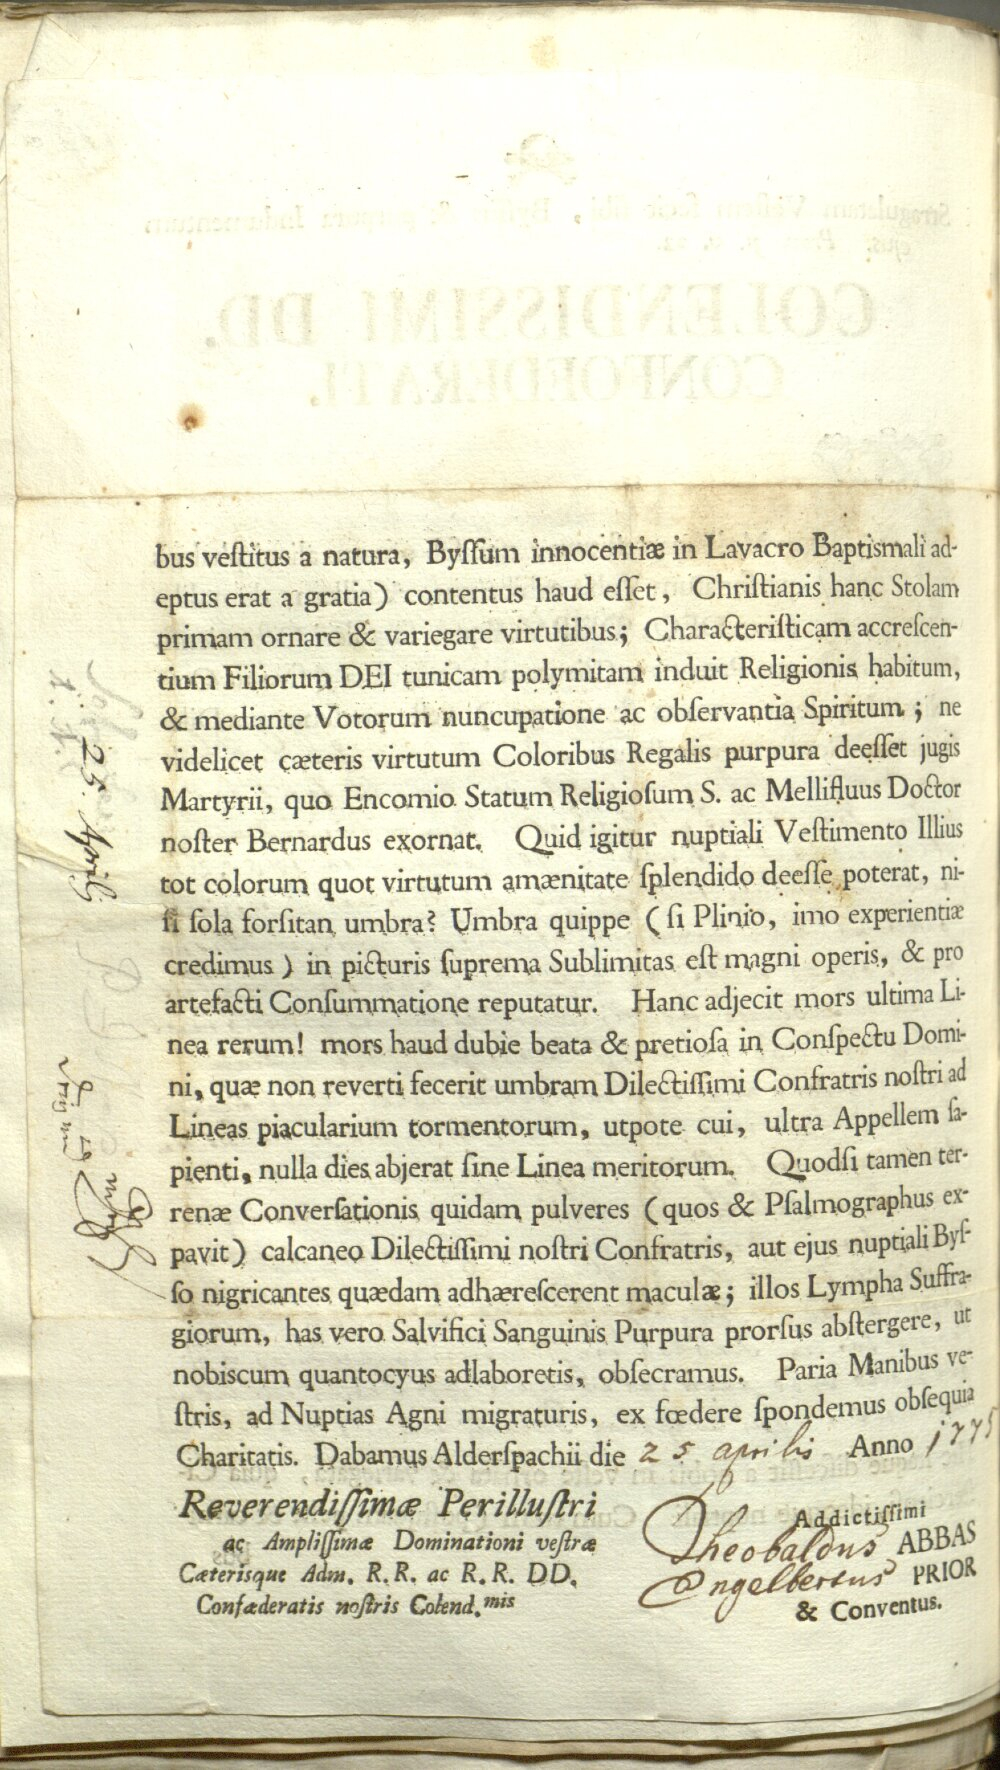 bus veſtitus a natura, Byſſum innocentiæ in Lavacro Baptismali ad-
eptus erat a gratia) contentus haud eſſet, Chriſtianis hanc Stolam
primam ornare & variegare virtutibus; Characteriſticam accreſcen-
tium Filiorum DEI tunicam polymitam induit Religionis habitum,
& mediante Votorum nuncupatione ac obſervantia Spiritum; ne
videlicet cæteris virtutum Coloribus Regalis purpura deeſſet jugis
Martyrii, quo Encomio Statum Religioſum S. ac Mellifluus Doctor
noſter Bernardus exornat. Quid igitur nuptiali Veſtimento Illius
tot colorum quot virtutum amænitate ſplendido deeſſe poterat, ni-
ſi ſola forſitan umbra? Umbra quippe (ſi Plinio, imo experientiæ
credimus) in picturis ſuprema Sublimitas eſt magni operis, & pro
artefacti Conſummatione reputatur. Hanc adjecit mors ultima Li-
nea rerum! mors haud dubie beata & pretioſa in Conſpectu Domi-
ni, quæ non reverti fecerit umbram Dilectiſſimi Confratris noſtri ad
Lineas piacularium tormentorum, utpote cui, ultra Appellem ſa-
pienti, nulla dies abjerat ſine Linea meritorum. Quodſi tamen ter-
renæ Converſationis quidam pulveres (quos & Pſalmographus ex-
pavit) calcaneo Dilectiſſimi noſtri Confratris, aut ejus nuptiali Byſ-
ſo nigricantes quædam adhæreſcerent maculæ; illos Lympha Suffra-
giorum, has vero Salvifici Sanguinis Purpura prorſus abſtergere, ut
nobiscum quantocyus adlaboretis, obſecramus. Paria Manibus ve-
ſtris, ad Nuptias Agni migraturis, ex fœdere ſpondemus obſequia
Charitatis. Dabamus Alderſpachii die 25 aprilis Anno 1775
Reverendiſſimæ Perilluſtri
ac Ampliſſimæ Dominationi veſtræ
Cæterisque Adm. R.R. ac R.R. DD.
Confæderatis noſtris Colend.mis
Addictiſſimi
Theobaldus ABBAS
Engelbertus PRIOR
& Conventus.
25. Aprilis
COLENDISSIMI DD.
CONFOEDERATI.